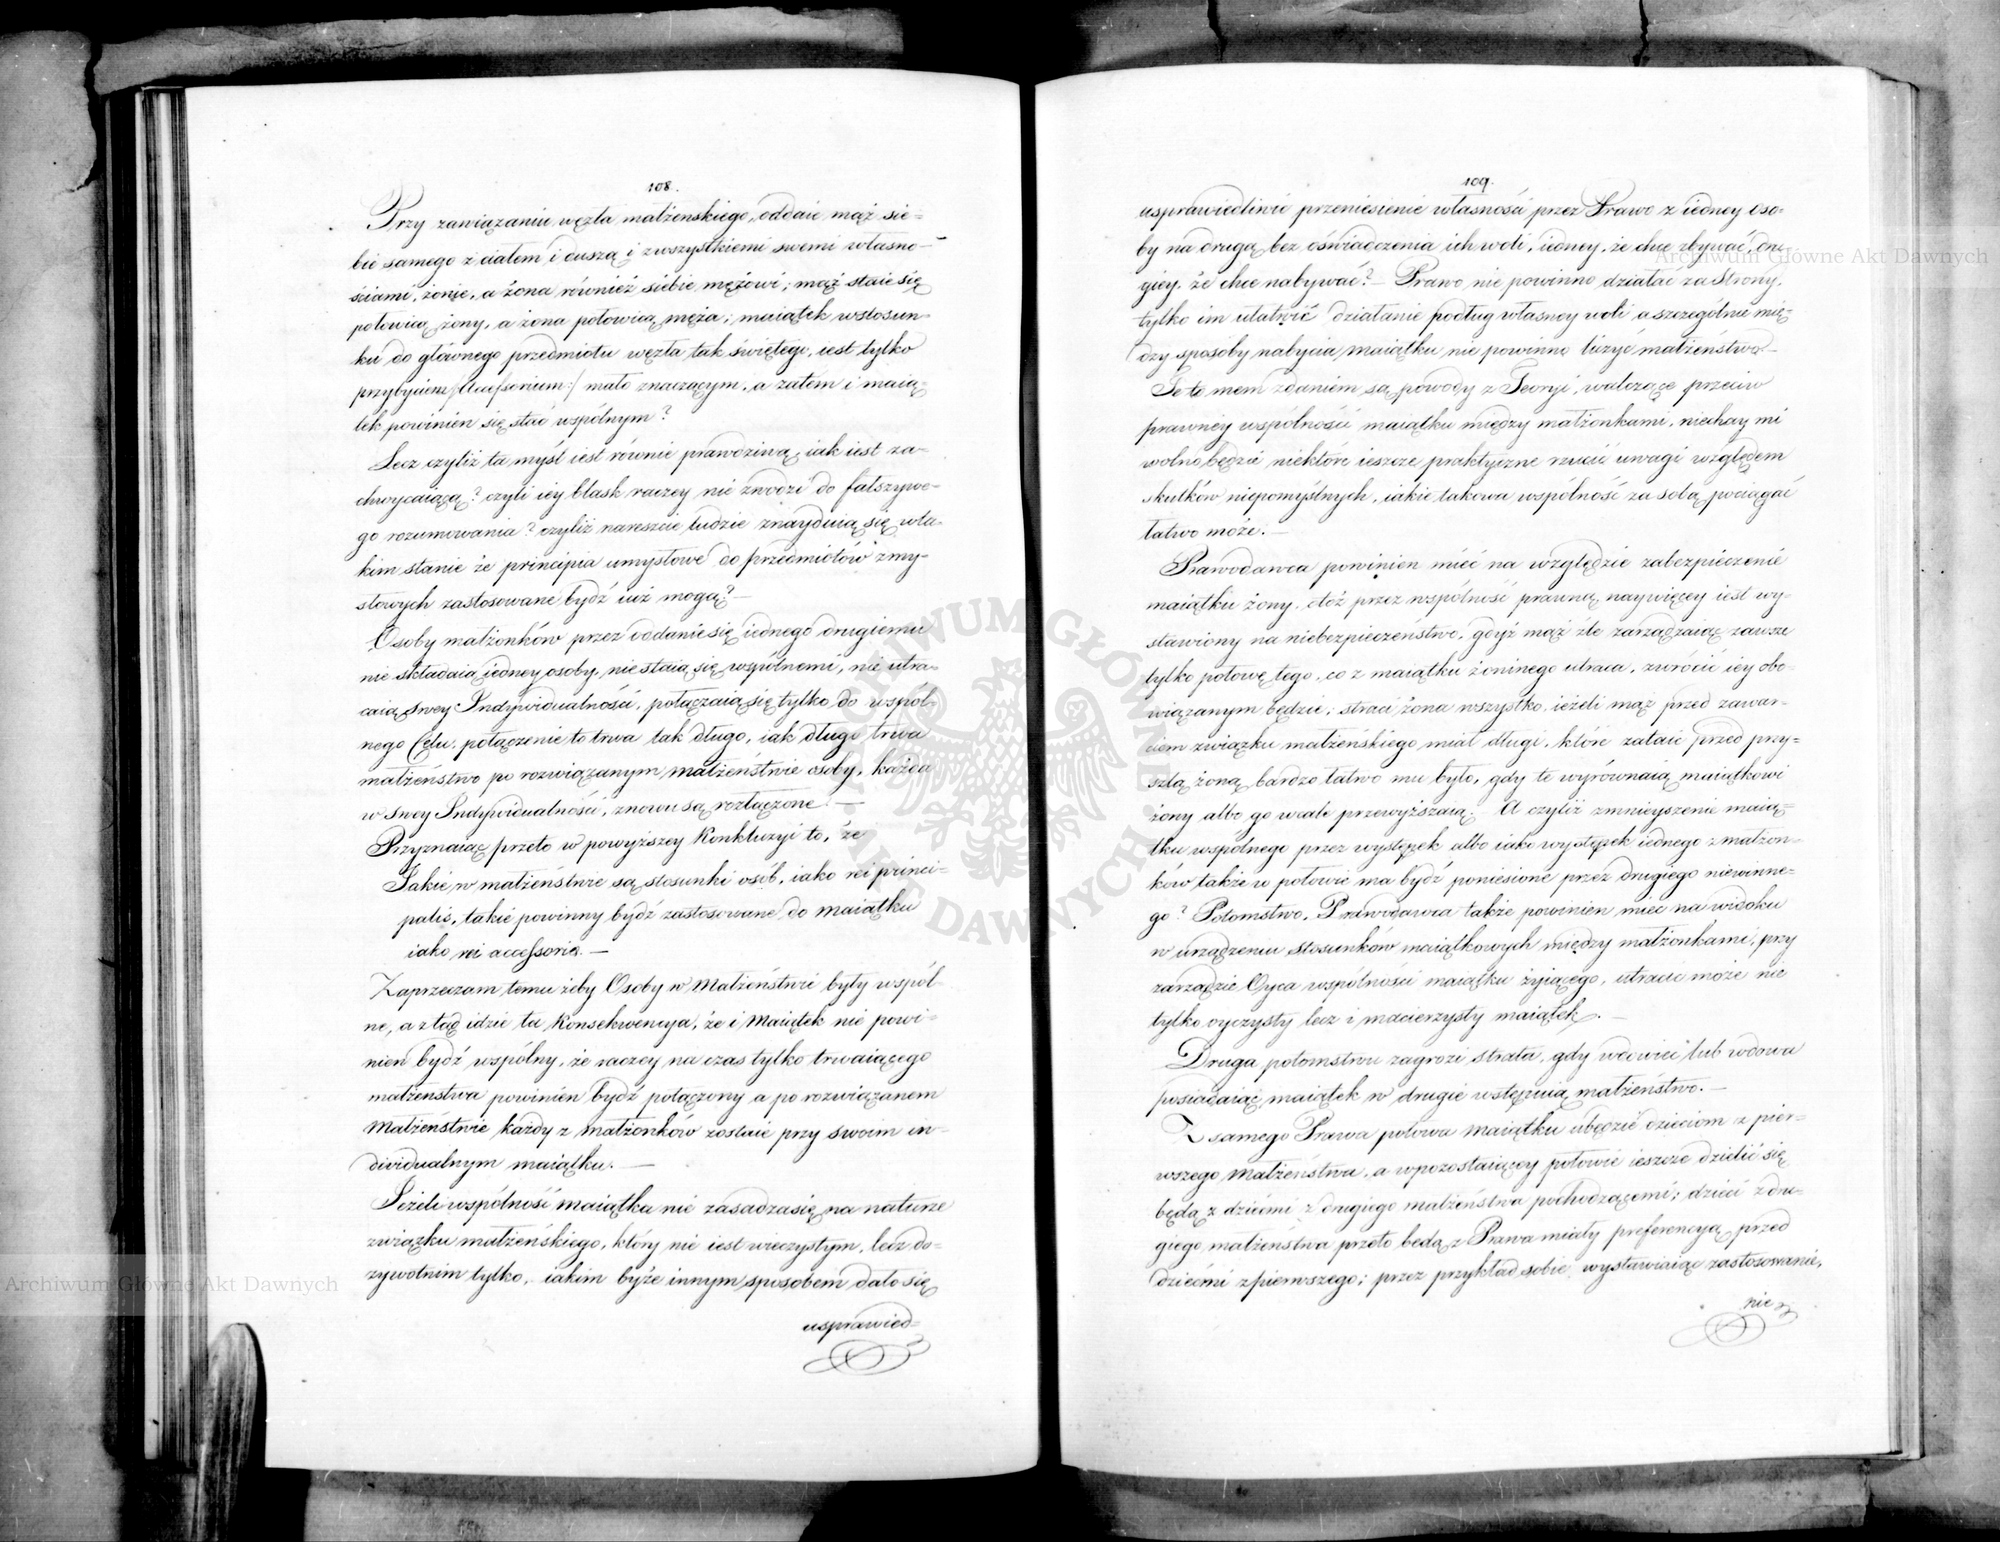 108.
Przy zawiązaniu węzła małżenskiego, oddaie mąż sie-
bie samego z ciałem i duszą i z wszystkiemi swemi własno-
ściami, żonie, a żona również siebie mężowi; mąż staie się
połowicą żony, a żona połowicą męża; maiątek w stosun-
ku do głównego przedmiotu węzła tak świętego, iest tylko
przybyciem /:Accessorium:/ mało znaczącym, a zatem i maią-
tek powinien się stać wspólnym?
Lecz czyliż ta myśl iest równie prawdziwą, iak iest za-
chwycaiącą? czyli iéy blask raczey nie zwodzi do fałszywe-
go rozumowania? czyliż nareszcie ludzie znayduią się w ta-
kim stanie że principia umysłowe do przedmiotów zmy-
słowych zastosowane bydź iuż mogą? —
Osoby małżonków przez oddanie się iednego drugiemu
nie składaią iedney osoby, nie staią się wspólnemi, nie utra-
caią swey Indywidualności, połączaią się tylko do wspól-
nego Celu, połączenie to trwa tak długo, iak długo trwa
małżeństwo po rozwiązanym małżeństwie osoby, każda
w swey Indywidualności, znowu są rozłączone. —
Przyznaiąc przeto w powyższey Konkluzyi to, że
Jakie w małżeństwie są stosunki osób, iako rei princi-
palis, takie powinny bydź zastosowane do maiątku
iako rei accessoria. —
Zaprzeczam temu żeby Osoby w Małżeństwie były wspól-
ne, a z tąd idzie ta Konsekwencya, że i Maiątek nie powi-
nien bydź wspólny, że raczey na czas tylko trwaiącego
małżeństwa powinien bydź połączony a po rozwiązanem
Małżeństwie każdy z Małżonków zostaie przy swoim in-
dividualnym maiątku. —
Jeżeli wspólność maiątku nie zasadza się na naturze
związku małżeńskiego, który nie iest wieczystym, lecz do-
zywotnim tylko, iakim byże innym sposobem dało się
usprawied-
109.
usprawiedliwić przeniesienie własności przez Prawo z iedney oso-
by na drugą bez oświadczenia ich woli, iedney, że chce zbywać, dru-
giey, że chce nabywać? — Prawo nie powinno działać za Strony,
tylko im ułatwić działanie podług własney woli a szczególnie mię-
dzy sposoby nabycia maiątku nie powinno liczyć małżeństwa —
Te to mem zdaniem są powody z Teoryi, walczące przeciw
prawney wspólności maiątku między małżonkami, niechay mi
wolno będzie niektóre ieszcze praktyczne rzucić uwagi względem
skutków niepomyślnych, iakie takowa wspólność za sobą pociągać
łatwo może. —
Prawodawca powinien mieć na względzie zabezpieczenie
maiątku żony, otóż przez wspólność prawną naywięcey iest wy-
stawiony na niebezpieczeństwo, gdyż mąż źle zarządzaiąc zawsze
tylko połowę tego, co z maiątku żoninego utraca, zwrócić iey obo-
wiązanym będzie; straci żona wszystko, ieżeli mąż przed zawar-
ciem związku małżeńskiego miał długi, które zataić przed przy-
szłą żoną bardzo łatwo mu było, gdy te wyrównaią maiątkowi
żony albo go wcale przewyższaią. A czyliż zmnieyszenie maią-
tku wspólnego przez występek albo iako występek iednego z małżon-
ków także w połowie ma bydź poniesione przez drugiego niewinne-
go? Potomstwo, Prawodawca także powinien mieć na widoku
w urządzeniu stosunków maiątkowych między małżonkami, przy
zarządzie Oyca wspólności maiątku żyiącego, utracić może nie
tylko oyczysty lecz i macierzysty maiątek. —
Druga potomstwu zagrozi strata, gdy wdowiec lub wdowa
posiadaiąc maiątek w drugie wstępuią małżeństwo. —
Z samego Prawa połowa maiątku ubędzie dzieciom z pier-
wszego Małżeństwa, a w pozostaiącey połowie ieszcze dzielić się
będą z dziećmi z drugiego małżeństwa pochodzącemi; dzieci z dru-
giego małżeństwa przeto będą z Prawa miały preferencyą przed
dziećmi z pierwszego; przez przykład sobie wystawiaiąc zastosowanie,
nie
Archiwum Główne Akt Dawnych
Archiwum Główne Akt Dawnych
ARCHIWUM GŁÓWNE AKT DAWNYCH